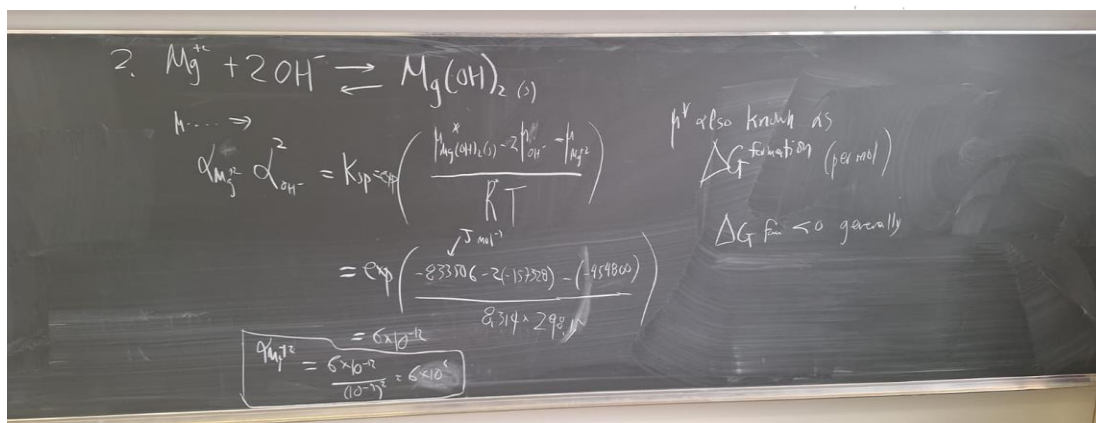 2. Mg⁺² + 2OH⁻ ⇌ Mg(OH)₂ (s)
μ.... →
α_Mg⁺² α²_OH⁻ = Ksp = exp( (μ*_Mg(OH)₂(s) - 2μ_OH⁻ - μ_Mg⁺²) / RT )
J mol⁻¹
= exp( (-833506 - 2(-157328) - (-454800)) / 8.314 × 298 )
= 6×10⁻¹²
α_Mg⁺² = 6×10⁻¹² / (10⁻³)² = 6×10
μ* also known as
ΔG formation (per mol)
ΔG <0 generally